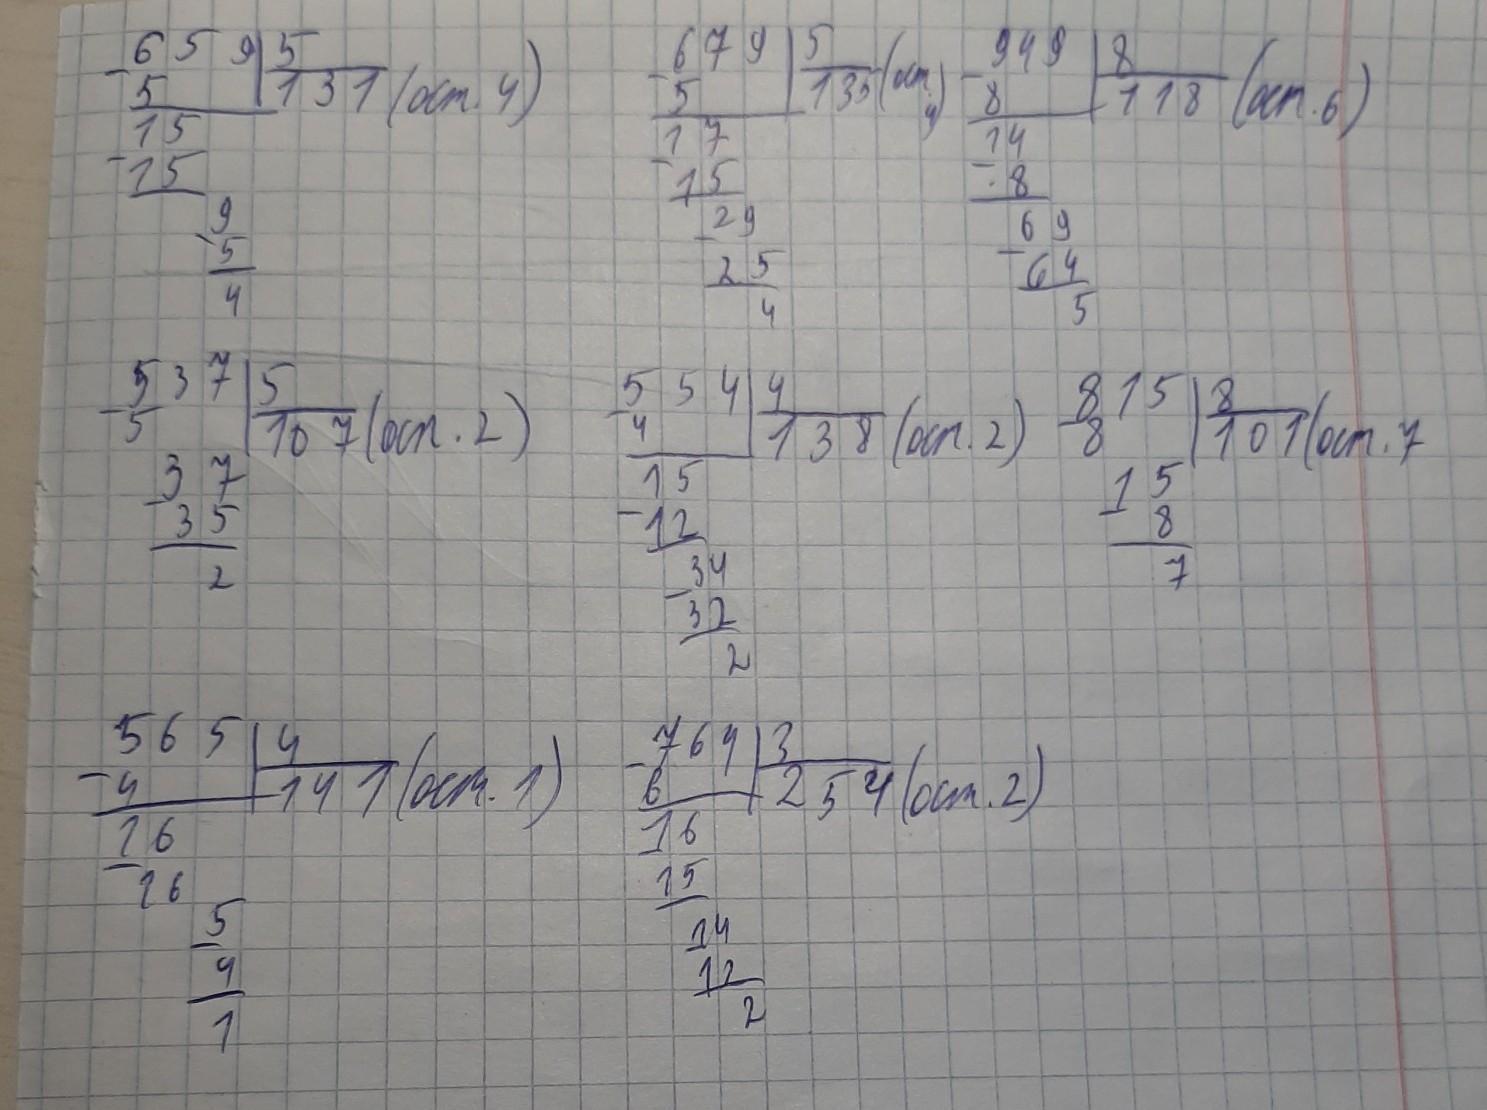 659 5 679 5 949 8
- 5 131 (ост. 4) - 5 135 (ост. 4) - 8 118 (ост. 6)
15 17 14
- 15 - 15 - 8
9 29 69
- 5 - 25 - 64
4 4 5
537 5 554 4 815 8
- 5 107 (ост. 2) - 4 138 (ост. 2) - 8 101 (ост. 7
37 15 15
- 35 - 12 - 8
2 34 7
- 32
2
565 4 764 3
- 4 141 (ост. 1) - 6 254 (ост. 2)
16 16
- 16 15
5 14
- 4 12
1 2